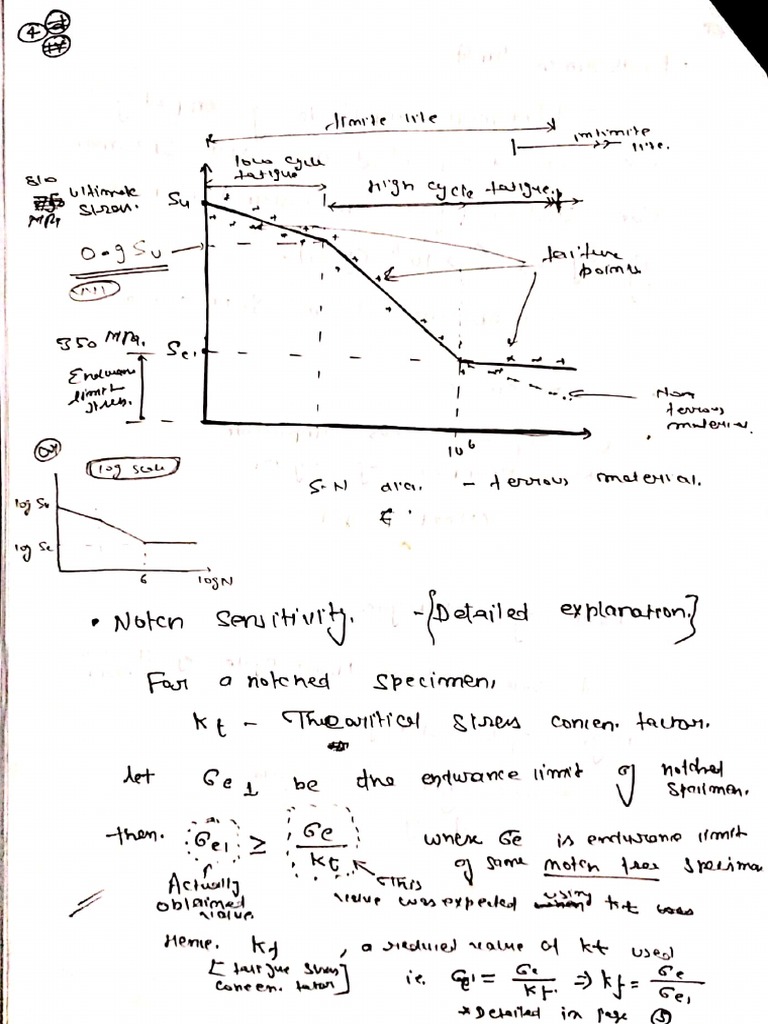 4
finite life
infinite
life.
low cycle
fatigue
High cycle fatigue.
810
MPa
Ultimate
Stress.
Su
0.9 Su
failure
points
350 MPa.
Se'
Endurance
limit
stress.
Non
ferrous
material
10^6
S-N dia. - ferrous material.
Or
log scale
log Su
log Se
6
log N
• Notch Sensitivity. - {Detailed explanation.}
For a notched specimen,
Kt - Theoritical stress concen. factor.
let σe1 be the endurance limit of notched
specimen.
then. σe1 ≥ σe/Kt where σe is endurance limit
of same notch free specimen
Actually
obtained
value
This
value was expected using Kt was
Hence. Kf, a reduced value of Kt used
[fatigue stress
concen. factor]
i.e. σe1 = σe/Kf. ⇒ Kf = σe/σe1
*Detailed in page 5